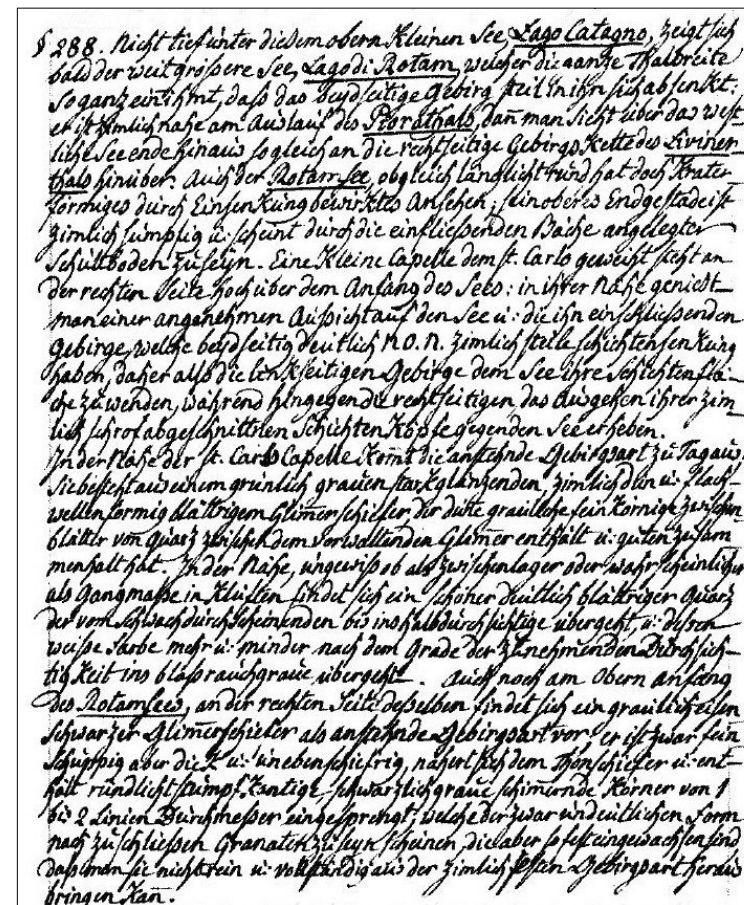 § 288. Nicht tief unter diesem obern Kleinen See Lago Catagno, zeigt sich
bald der weit grössere See, Lago di Rotam, welcher die ganze Thalbreite
so ganz einnihmt, daß das beydseitige Gebirg steil in ihn sich absenkt:
er ist zimlich nahe am Auslauf des Piorathals, dan̄ man sieht über das west-
liche See ende hinaus sogleich an die rechtseitige Gebirgs Kette des Liviner-
thals hinüber. Auch der Rotamsee, obgleich länglicht rund hat doch Krater-
förmiges durch Einsenkung bewirktes Ansehen; sein oberes Endgestade ist
zimlich sumpfig u: scheint durch die einfliessenden Bäche angelegter
Schuttboden zu seyn. Eine Kleine Capelle dem st. Carlo geweiht steht an
der rechten Seite hoch über dem Anfang des Sees: in ihrer Nähe genießt
man einer angenehmen Aussicht auf den See u: die ihn einschliessenden
Gebirge, welche beydseitig deutlich N.O.N. zimlich steile Schichtensenkung
haben, daher also die linkseitigen Gebirge dem See ihre Schichtenflä-
che zuwenden, während hingegen die rechtseitigen das Ausgehen ihrer zim-
lich schrof abgeschnittnen Schichten Köpfe gegen den See erheben.
In der Nähe der st. Carlo Capelle Kom̄t die anstehnde Gebirgsart zu Tag aus:
sie besteht aus einem grünlich grauen stark glänzenden, zimlich dün u: flach-
wellenförmig blättrigem Glim̄erschiefer der dün̄e graulichte fein Körnige zwischen-
blätter von Quarz zwischen dem vorwaltenden Glim̄er enthält u: guten zusam-
menhalt hat. In der Nähe, ungewiß ob als zwischenlager oder wahrscheinlicher
als Gangmasse in Klüften findet sich ein schöner deutlich blättriger Quarz
der vom schwach durchscheinenden bis ins halbdurchsichtige übergeht, u: dessen
weiße Farbe mehr u: minder nach dem Grade der zunehmenden Durchsich-
tigkeit ins blaß rauchgraue übergeht. Auch noch am obern anfang
des Rotamsees, an der rechten Seite desselben findet sich ein graulich eisen
schwarzer Glim̄erschiefer als anstehnde Gebirgsart vor, er ist zwar fein
schuppig aber dick u: uneben schiefrig, nähert sich dem Thonschiefer u: ent-
hält rundlicht stumpf Kantige, schwarzlich graue schim̄ernde Körner von 1
bis 2 Linien Durchmesser eingesprengt, welche der zwar undeutlichen Form
nach zu schließen Granaten zu seyn scheinen, die aber so fest eingewachsen sind
daß man sie nicht rein u: vollständig aus der zimlich festen Gebirgsart heraus
bringen Kan.